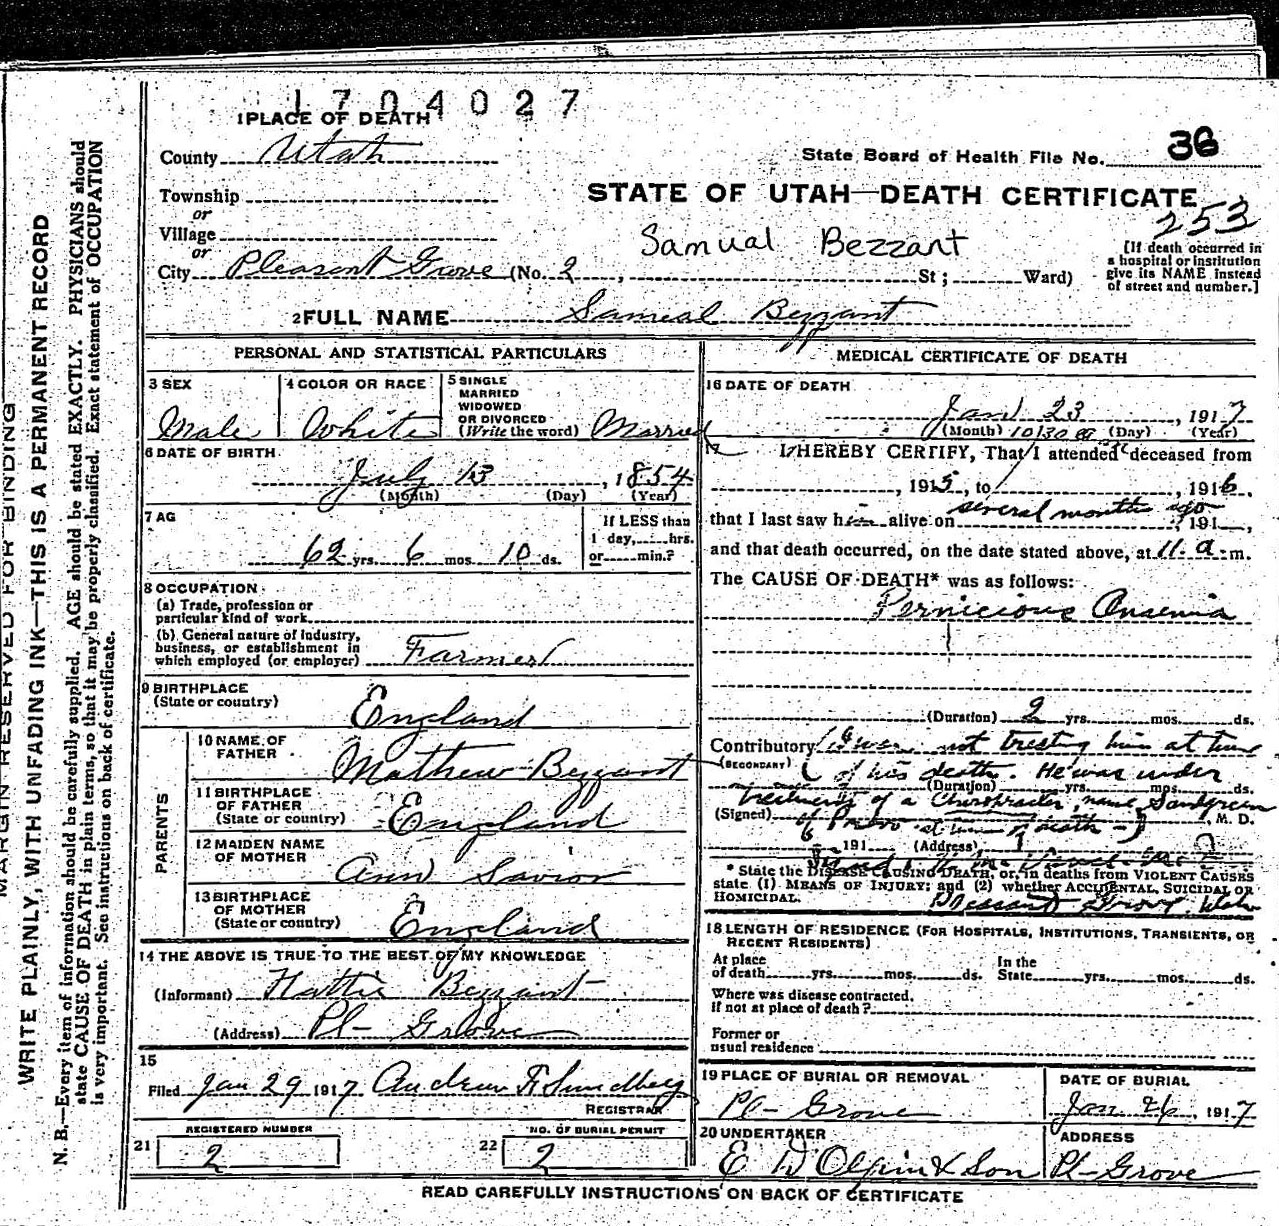 1704027
1 PLACE OF DEATH
County Utah
State Board of Health File No. 36
Township
or
STATE OF UTAH—DEATH CERTIFICATE
253
Village
or
Samual Bezzant
City Pleasant Grove (No. 2, St; Ward)
[If death occurred in
a hospital or institution
give its NAME instead
of street and number.]
2 FULL NAME Samual Bezzant
PERSONAL AND STATISTICAL PARTICULARS
3 SEX
Male
4 COLOR OR RACE
White
5 SINGLE
MARRIED
WIDOWED
OR DIVORCED
(Write the word) Married
6 DATE OF BIRTH
July 13, 1854
(Month) (Day) (Year)
7 AG
62 yrs. 6 mos. 10 ds.
If LESS than
1 day, hrs.
or min.?
8 OCCUPATION
(a) Trade, profession or
particular kind of work
(b) General nature of industry,
business, or establishment in
which employed (or employer) Farmer
9 BIRTHPLACE
(State or country) England
PARENTS
10 NAME OF
FATHER Mathew Bezzant
11 BIRTHPLACE
OF FATHER
(State or country) England
12 MAIDEN NAME
OF MOTHER
Ann Savior
13 BIRTHPLACE
OF MOTHER
(State or country) England
14 THE ABOVE IS TRUE TO THE BEST OF MY KNOWLEDGE
(Informant) Hattie Bezzant
(Address) Pl- Grove
15
Filed Jan 29 1917 Andrew F Sundberg
REGISTRAR
21 REGISTERED NUMBER
2
22 NO. OF BURIAL PERMIT
2
MEDICAL CERTIFICATE OF DEATH
16 DATE OF DEATH
Jan 23, 1917
(Month) 10:30 a (Day) (Year)
17 I HEREBY CERTIFY, That I attended deceased from
, 1915, to , 1916,
that I last saw him alive on several months ago, 191 ,
and that death occurred, on the date stated above, at 11 a m.
The CAUSE OF DEATH* was as follows:
Pernicious Anaemia
(Duration) 2 yrs. mos. ds.
Contributory (I was not treating him at time
(SECONDARY) of his death. He was under
(Duration) yrs. mos. ds.
treatments of a Chiropractor, name Sandgreen
(Signed) of Provo at time of death -) , M. D.
191 (Address)
* State the DISEASE CAUSING DEATH, or, in deaths from VIOLENT CAUSES
state (1) MEANS OF INJURY; and (2) whether ACCIDENTAL, SUICIDAL OR
HOMICIDAL. Pleasant Grove Utah
18 LENGTH OF RESIDENCE (FOR HOSPITALS, INSTITUTIONS, TRANSIENTS, OR
RECENT RESIDENTS)
At place
of death yrs. mos. ds.
In the
State yrs. mos. ds.
Where was disease contracted,
if not at place of death?
Former or
usual residence
19 PLACE OF BURIAL OR REMOVAL
Pl- Grove
DATE OF BURIAL
Jan 26, 1917
20 UNDERTAKER
E D Olpin & Son
ADDRESS
Pl- Grove
READ CAREFULLY INSTRUCTIONS ON BACK OF CERTIFICATE
MARGIN RESERVED FOR BINDING
WRITE PLAINLY, WITH UNFADING INK—THIS IS A PERMANENT RECORD
N. B.—Every item of information should be carefully supplied. AGE should be stated EXACTLY. PHYSICIANS should
state CAUSE OF DEATH in plain terms, so that it may be properly classified. Exact statement of OCCUPATION
is very important. See instructions on back of certificate.